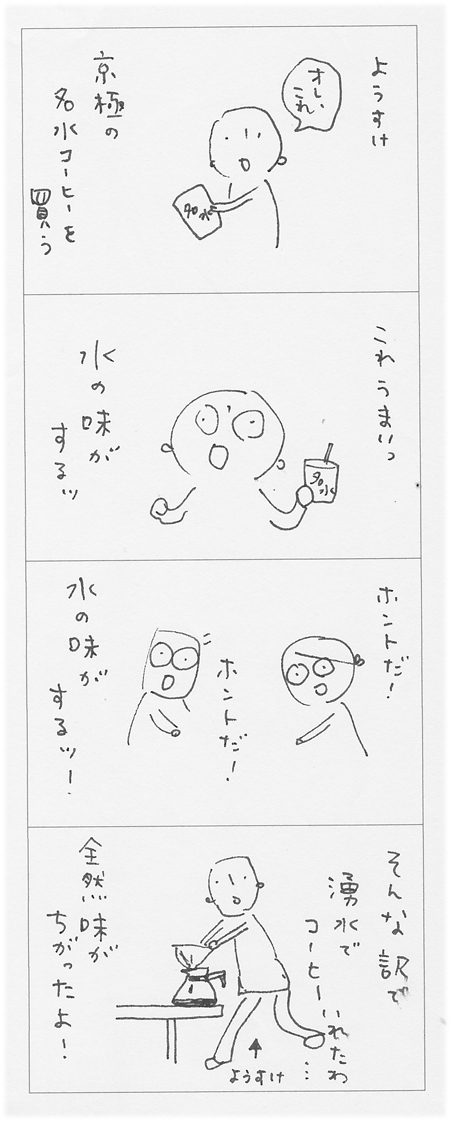 ようすけ
オレ、
これ
名水
京極の
名水コーヒーを
買う
これうまいっ
名水
水の味が
するッ
ホントだ!
ホントだ!
水の味が
するッー!
そんな訳で
湧水で
コーヒーいれたわ…
ようすけ
全然味が
ちがったよ!